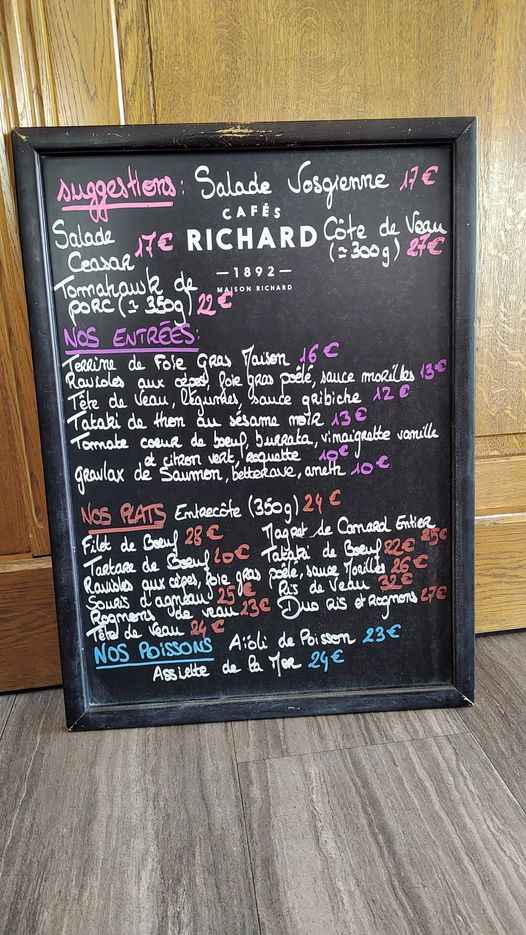 Suggestions: Salade Vosgienne 17€
CAFÉS
RICHARD
—1892—
MAISON RICHARD
Salade Ceasar 17€
Côte de Veau (≃300g) 27€
Tomahawk de porc (≃350g) 22€
NOS ENTRÉES:
Terrine de Foie Gras Maison 16€
Ravioles aux cèpes, foie gras poêlé, sauce morilles 13€
Tête de Veau, légumes, sauce gribiche 12€
Tataki de thon au sésame noir 13€
Tomate coeur de boeuf, burrata, vinaigrette vanille
et citron vert, roquette 10€
Gravlax de Saumon, betterave, aneth 10€
NOS PLATS Entrecôte (350g) 24€
Filet de Boeuf 28€ Magret de Canard Entier 25€
Tartare de Boeuf 20€ Tataki de Boeuf 22€
Ravioles aux cèpes, foie gras poêlé, sauce Morilles 26€
Souris d'agneau 25€ Ris de Veau 32€
Rognons de veau 23€ Duo Ris et Rognons 27€
Tête de Veau 24€
NOS POISSONS Aïoli de Poisson 23€
Assiette de la Mer 24€